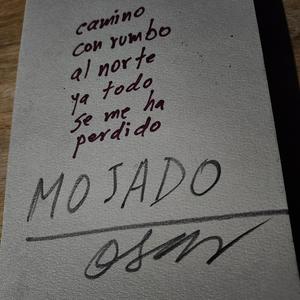 camino
con rumbo
al norte
ya todo
se me ha
perdido
MOJADO